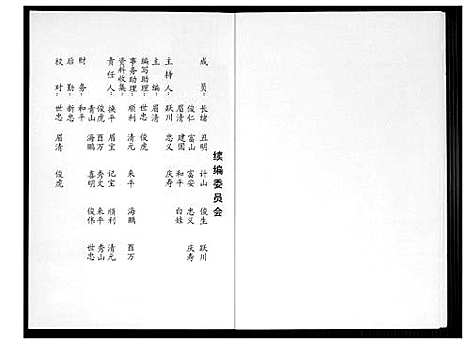 续编委员会
成员：长绪 丑明 计山 俊生 跃川
俊仁 富山 富安 忠义 庆寿
眉清 建国 和平 白娃
主持人：跃川 忠义 庆寿
主编：眉清
编写助理：世忠 俊虎
事务助理：顺利 清元 来平 海鹏 酉万
资料收集：
责任人：换平 眉宝 记宝 顺利 清元
俊虎 酉万 秀文 来平 秀山
青山 海鹏 喜明 俊伟 世忠
财务：和平
后勤：新忠
校对：世忠 眉清 俊虎